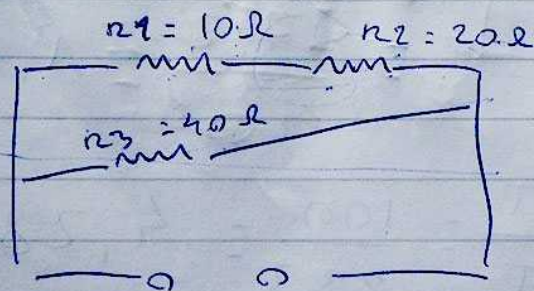 r1 = 10Ω r2 = 20Ω
r3 = 40Ω